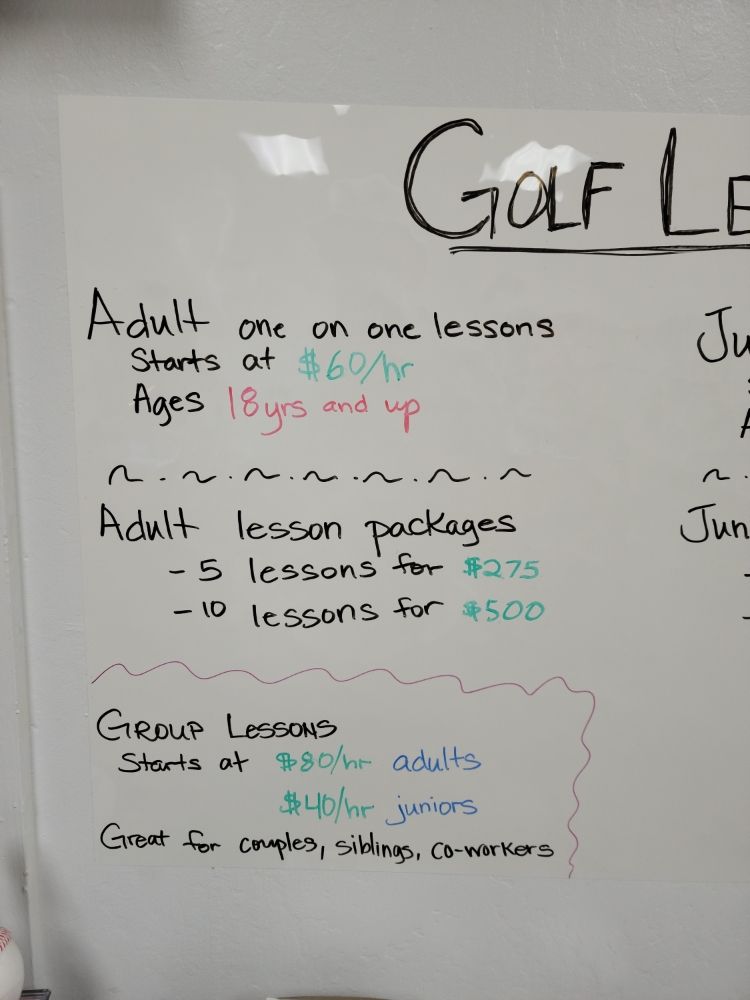 GOLF
Adult one on one lessons
Starts at $60/hr
Ages 18yrs and up
Adult lesson packages
- 5 lessons for $275
- 10 lessons for $500
GROUP LESSONS
Starts at $80/hr adults
$40/hr juniors
Great for couples, siblings, co-workers